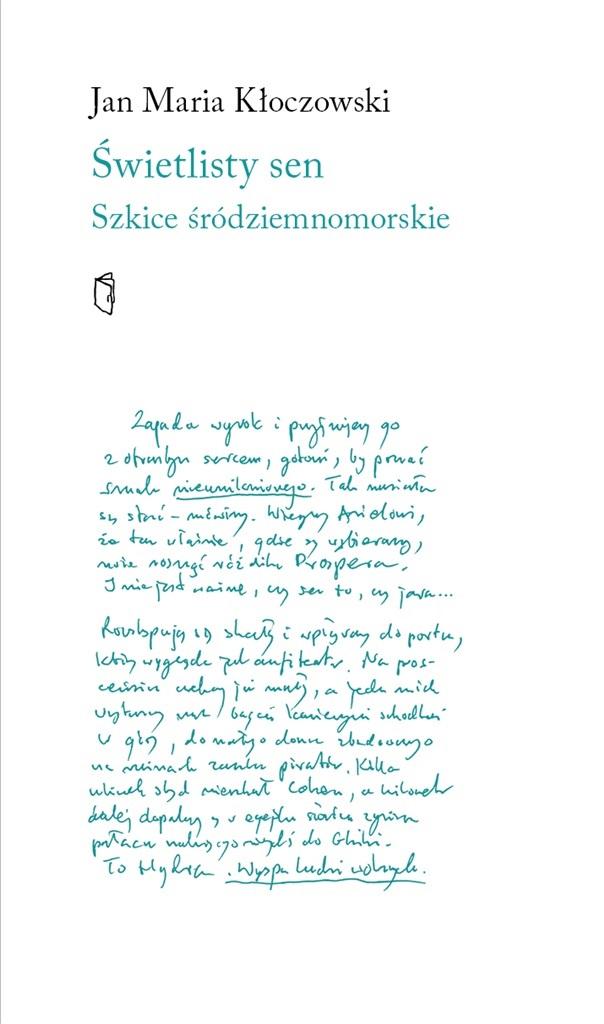 Jan Maria Kłoczowski
Świetlisty sen
Szkice śródziemnomorskie
Zapada wyrok i przyjmijmy go
z otwartym sercem, gotowi, by poznać
smak nieumilonionego. Tak musiało
się stać – mówimy. Wierzymy Arielowi,
że tam właśnie, gdzie się wybieramy,
może rosnąć różdżka Prospera.
I nie jest ważne, czy sen to, czy jawa...
Rozstępują się skały i wpływamy do portu,
który wygląda jak amfiteatr. Na
już mały, a jeden z nich
kamiennymi schodkami
w górę, do małego domu zbudowanego
na ruinach zamku piratów. Kilka
uliczek stąd mieszkał Cohen, a kilometr
dalej dopalają się w
pałacu należącego niegdyś do Ghiki.
To Hydra. Wyspa ludzi wolnych.